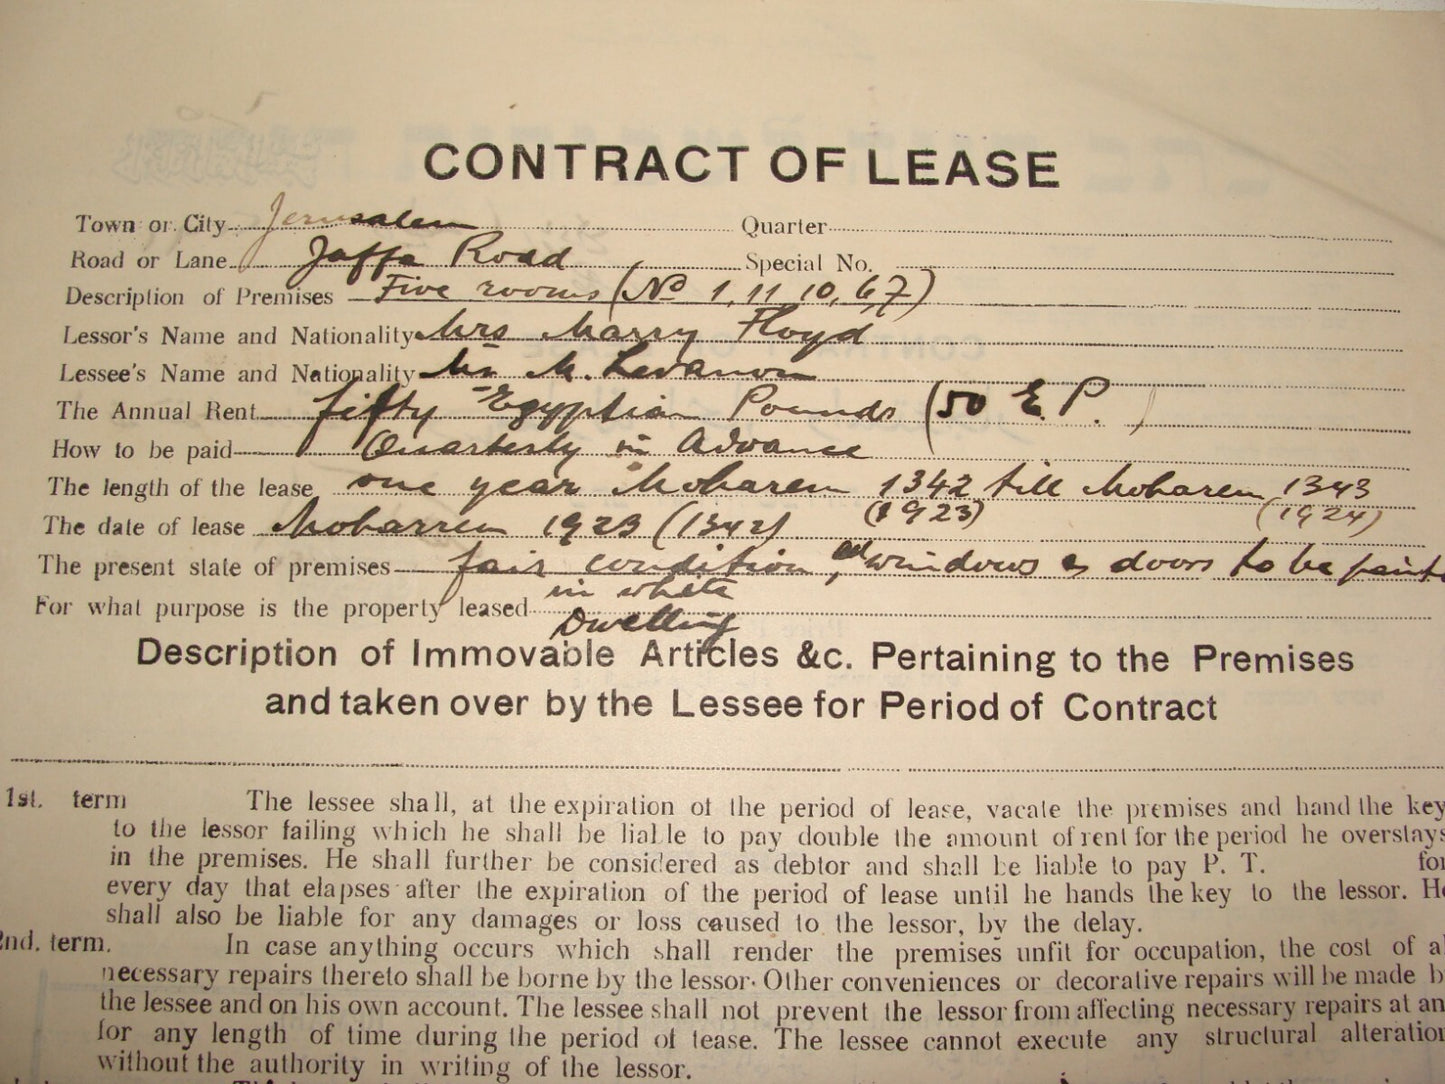 CONTRACT OF LEASE
Town or City Jerusalem Quarter
Road or Lane Jaffa Road Special No.
Description of Premises Five rooms (No 1, 11, 10, 6, 7)
Lessor's Name and Nationality Mrs Marry Floyd
Lessee's Name and Nationality Mr M. Levanon
The Annual Rent fifty Egyptian Pounds (50 E.P. )
How to be paid Quarterly in Advance
The length of the lease one year Moharem 1342 till Moharem 1343
(1923) (1924)
The date of lease Moharrem 1923 (1342)
The present state of premises fair condition, windows & doors to be
in white
For what purpose is the property leased
Dwelling
Description of Immovable Articles &c. Pertaining to the Premises
and taken over by the Lessee for Period of Contract
1st. term The lessee shall, at the expiration of the period of lease, vacate the premises and hand the key
to the lessor failing which he shall be liable to pay double the amount of rent for the period he overstays
in the premises. He shall further be considered as debtor and shall be liable to pay P. T. for
every day that elapses after the expiration of the period of lease until he hands the key to the lessor. He
shall also be liable for any damages or loss caused to the lessor, by the delay.
2nd. term. In case anything occurs which shall render the premises unfit for occupation, the cost of al
necessary repairs thereto shall be borne by the lessor. Other conveniences or decorative repairs will be made b
the lessee and on his own account. The lessee shall not prevent the lessor from affecting necessary repairs at an
for any length of time during the period of tease. The lessee cannot execute any structural alteration
without the authority in writing of the lessor.